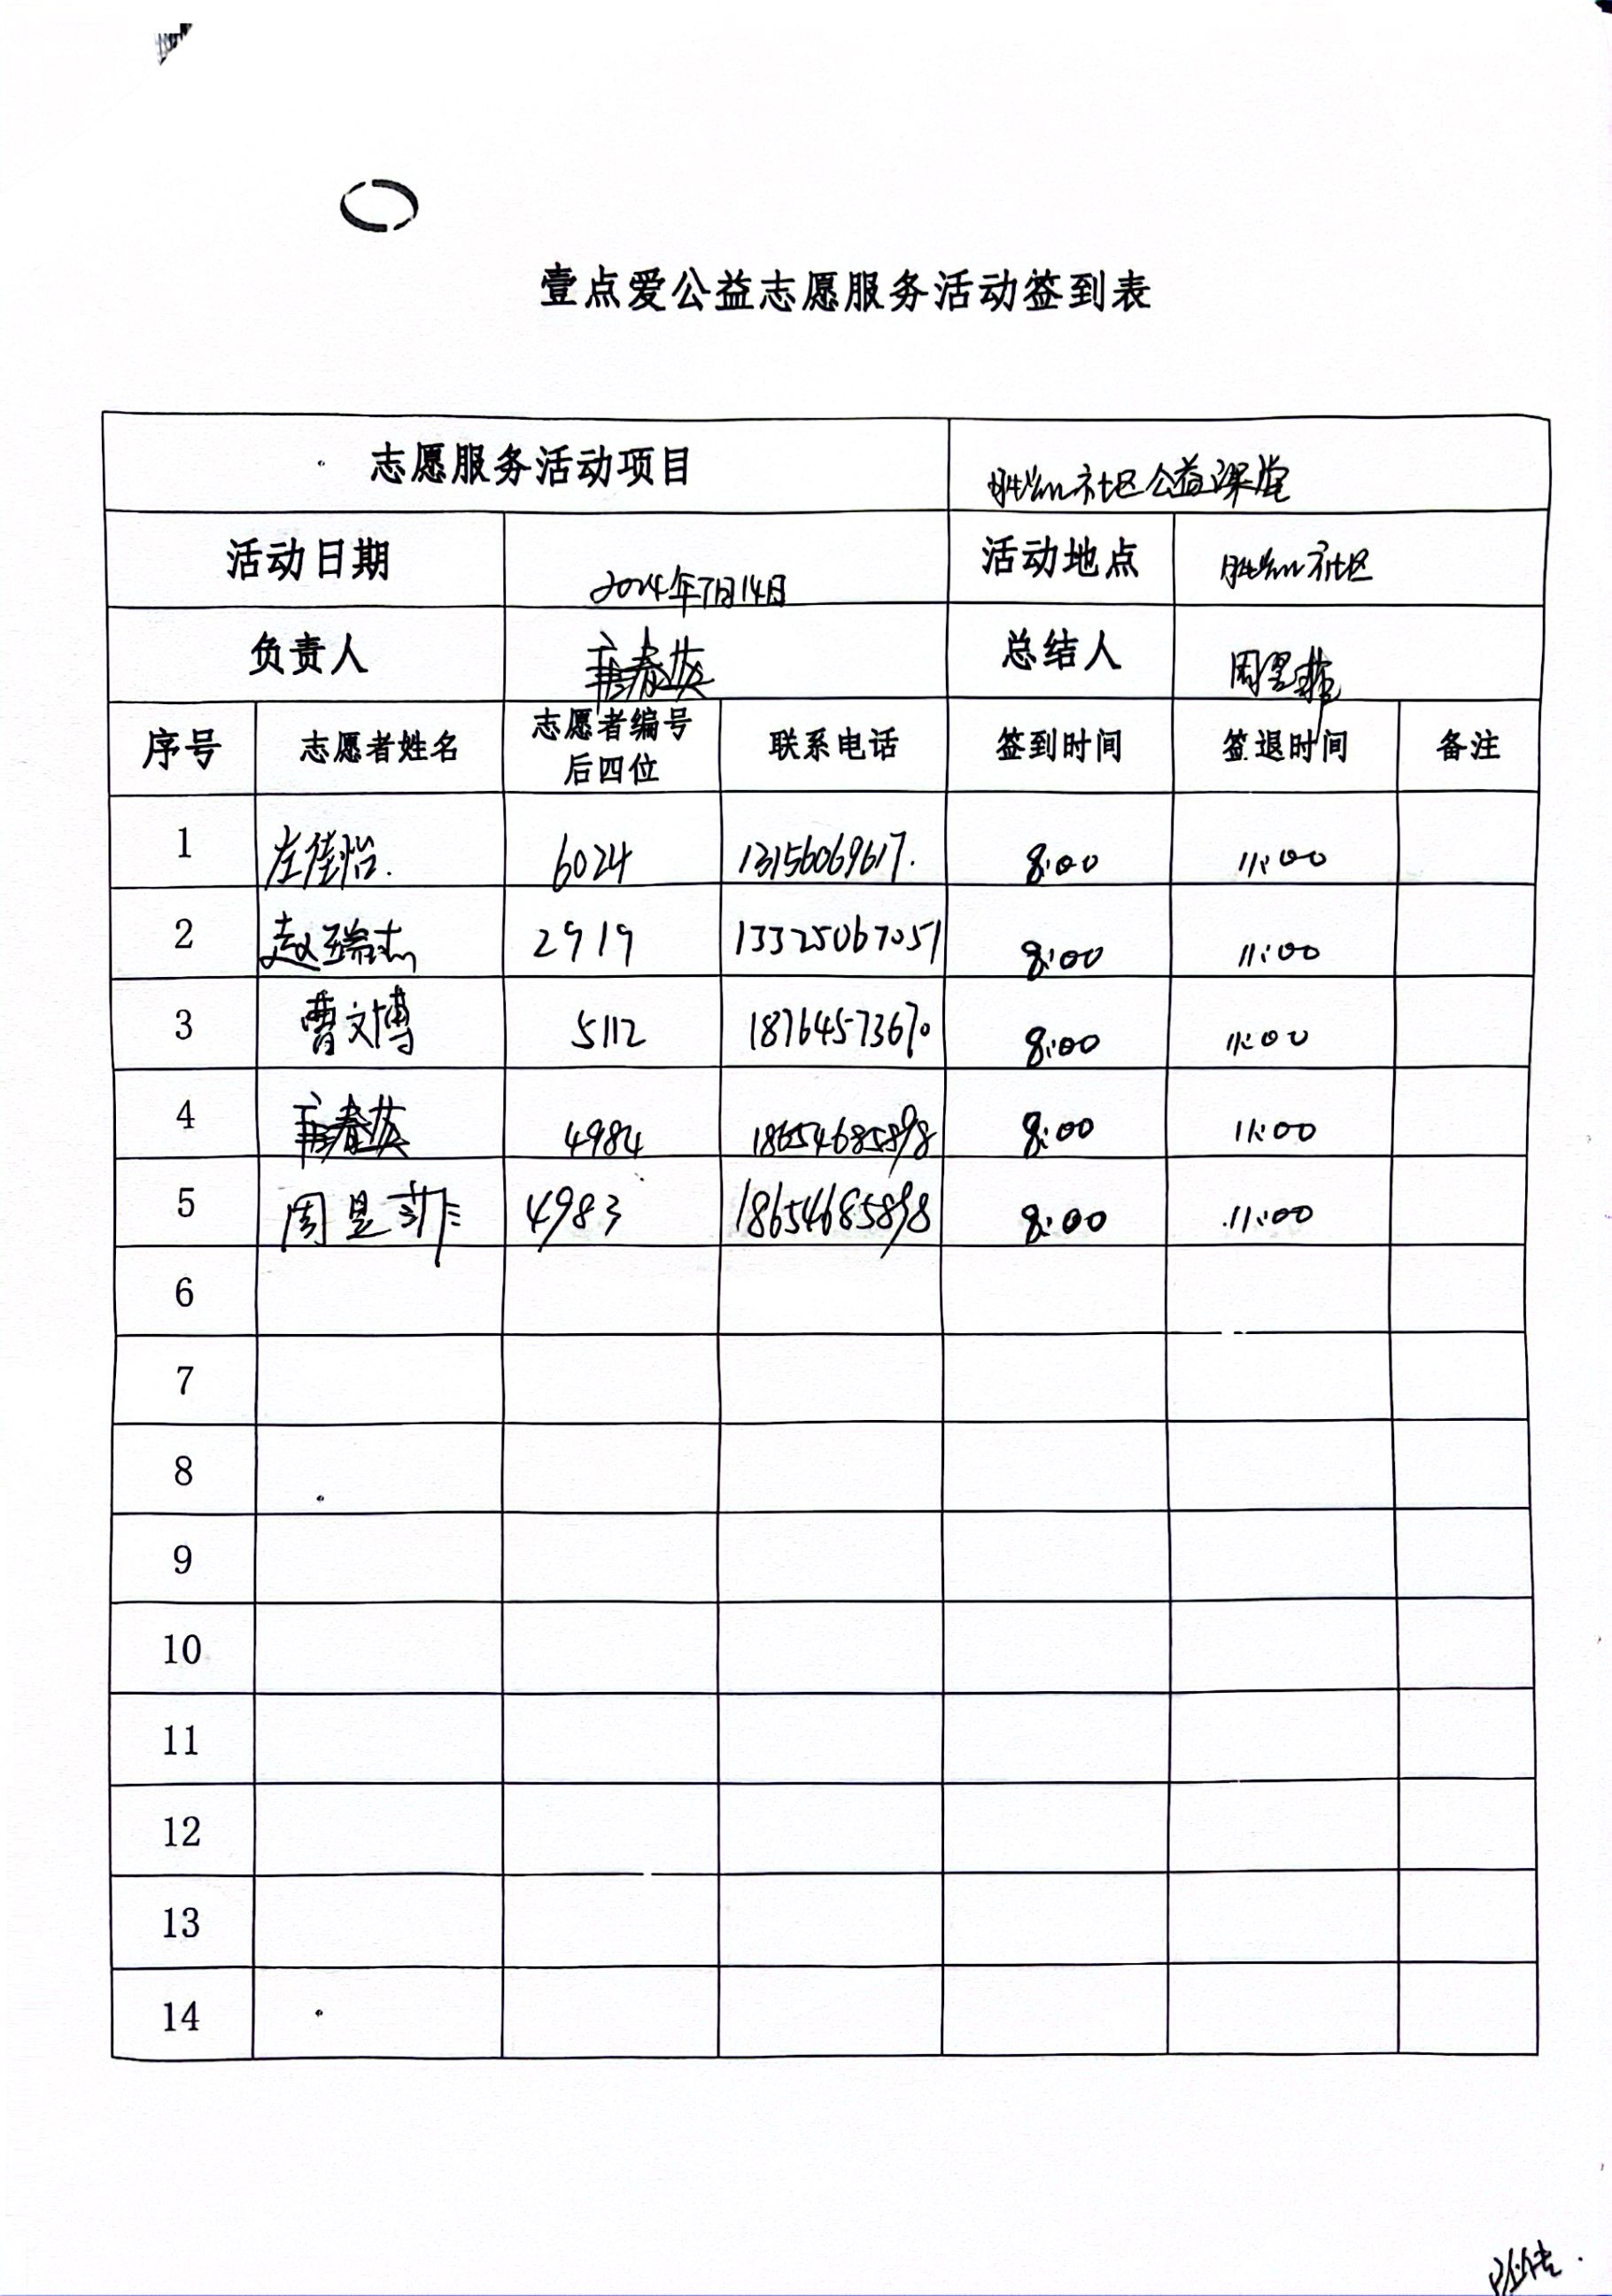 壹点爱公益志愿服务活动签到表
志愿服务活动项目 社区公益课堂
活动日期 2024年7月14日 活动地点 社区
负责人 春英 总结人 周昱菲
序号 志愿者姓名 志愿者编号后四位 联系电话 签到时间 签退时间 备注
1 左佳怡. 6024 13156069617. 8:00 11:00
2 赵瑞杰 2919 13325067051 8:00 11:00
3 曹文博 5112 18764573670 8:00 11:00
4 春英 4984 18654685898 8:00 11:00
5 周昱菲 4983 18654685898 8:00 11:00
6
7
8
9
10
11
12
13
14